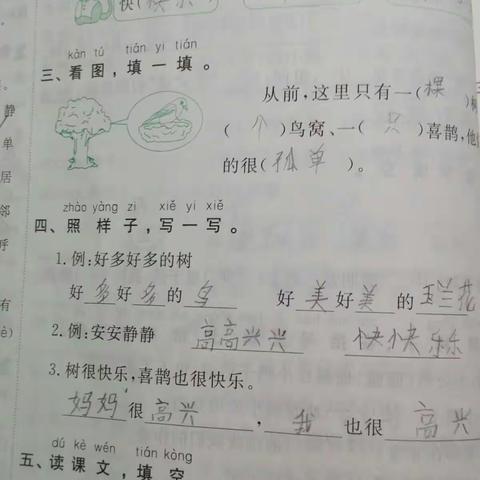 快(快乐)
kàn tú tián yi tián
三、看图,填一填。
从前,这里只有一(棵)
(个)鸟窝、一(只)喜鹊,他
的很(孤单)。
静
单
居
邻
呼
有
è)
zhào yàng zi xiě yi xiě
四、照样子,写一写。
1.例:好多好多的树
好多好多的鸟 好美好美的玉兰花
2.例:安安静静 高高兴兴 快快乐乐
3.树很快乐,喜鹊也很快乐。
妈妈很高兴,我也很高兴
dú kè wén tián kòng
五、读课文,填空